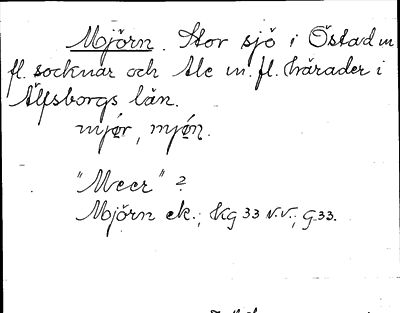 Mjörn. Stor sjö i Östad m
fl. socknar och Ale m. fl. härader i
Älfsborgs län.
mjør, mjøn.
"Meer" ?
Mjörn ek.; Kg 33 N.V.; G 33.